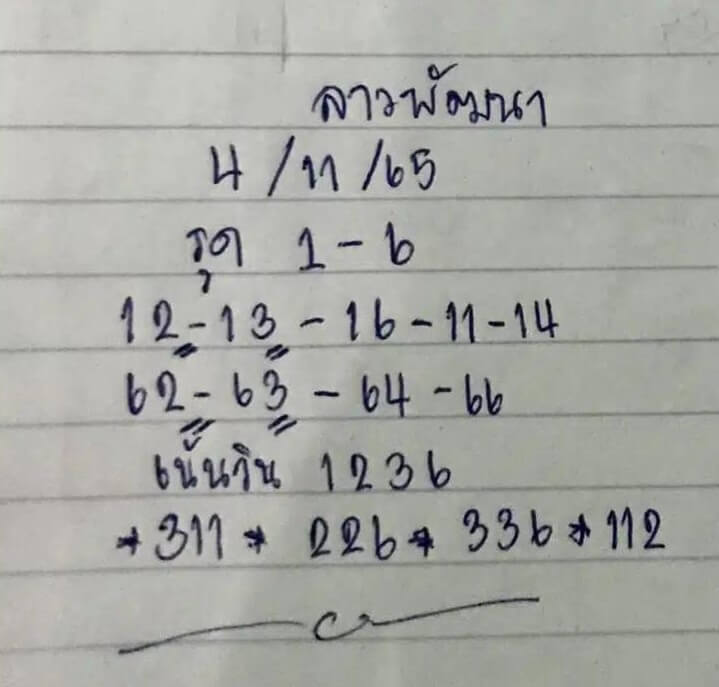 ลาวพัฒนา
4/11/65
รูด 1-6
12-13-16-11-14
62-63-64-66
เน้นวิน 1236
*311* 226* 336*112